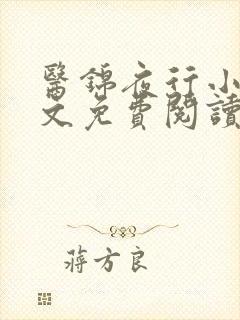 醫錦夜行小
文免費閱讀
蔣方良